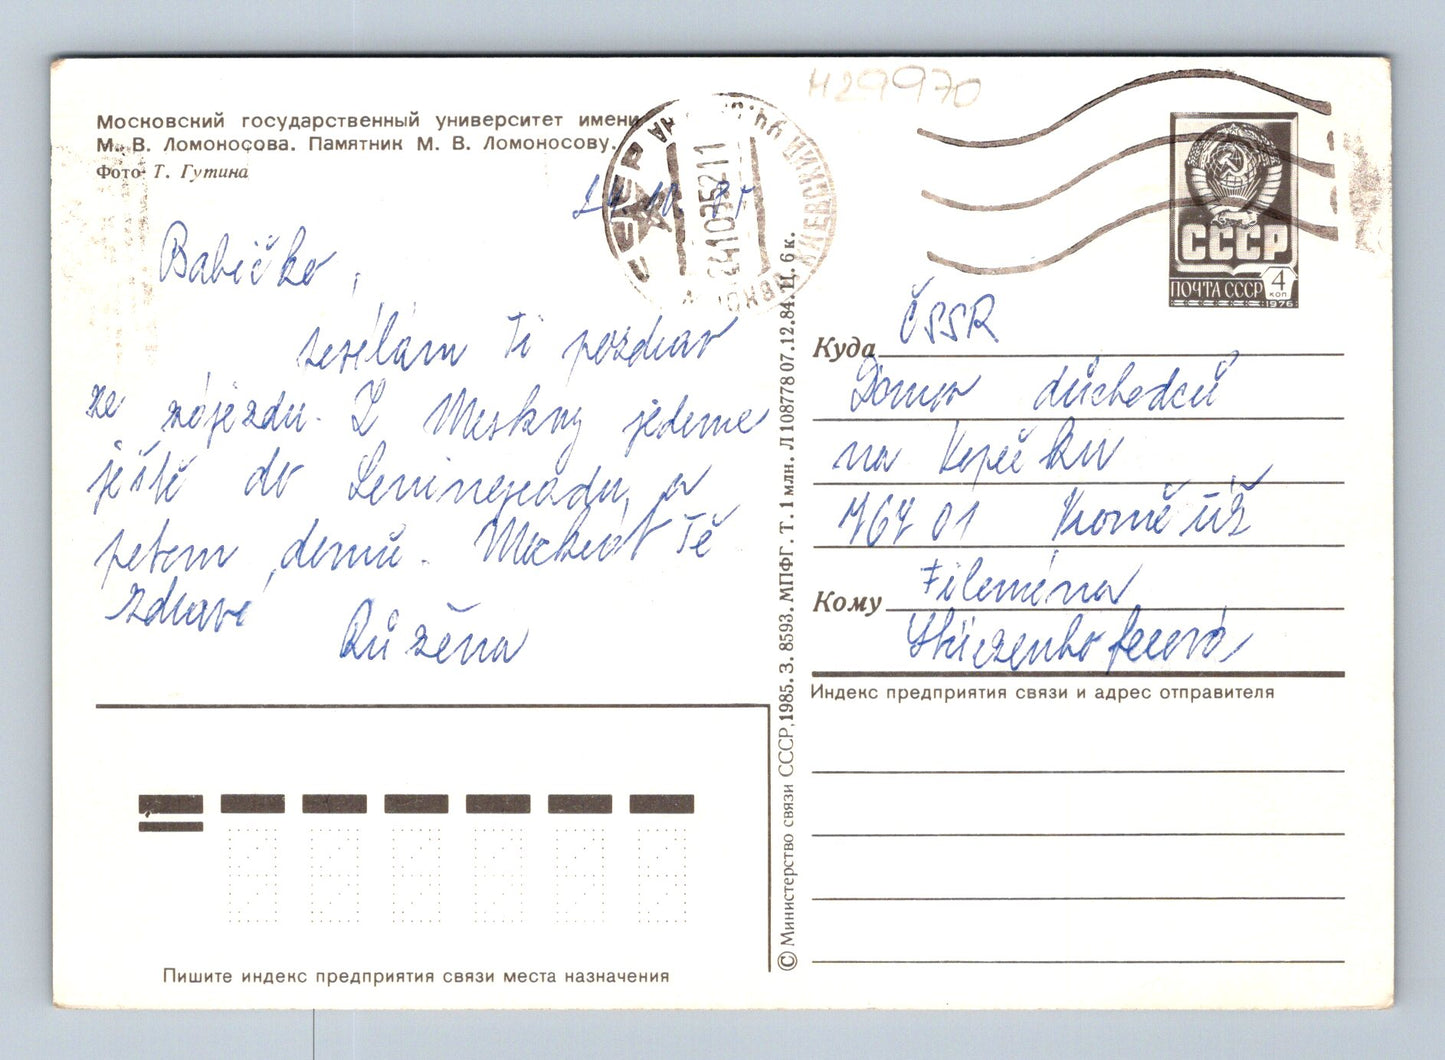 Н29970
Московский государственный университет имени
М. В. Ломоносова. Памятник М. В. Ломоносову.
Фото Т. Гутина
24.10.85
СССР
241085211
Babičko,
zesílám Ti pozdrav
ze zájezdu. Z Moskvy jedeme
ještě do Leningradu, a
potom domů. Mockrát Tě
zdraví
Růžena
СССР
ПОЧТА СССР
4
коп
1976
Куда
ČSSR
Domov důchodců
na Kopečku
767 01 Kroměříž
Кому
Filoména
Индекс предприятия связи и адрес отправителя
© Министерство связи СССР, 1985. З. 8593. МПФГ. Т. 1 млн. Л 108778 07.12.84. Ц. 6 к.
Пишите индекс предприятия связи места назначения